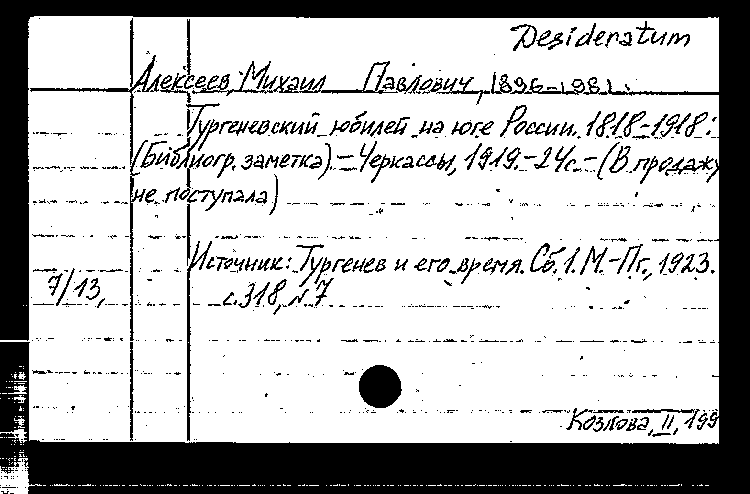 Desideratum
Алексеев, Михаил Павлович, 1896-1981.
Тургеневский юбилей на юге России. 1818-1918:
(Библиогр. заметка).- Черкассы, 1919.- 24с.- (В продажу
не поступала)
Источник: Тургенев и его время. Сб. 1. М.-Пг., 1923.
7/13, с. 318, N. 7
Козлова, II, 199